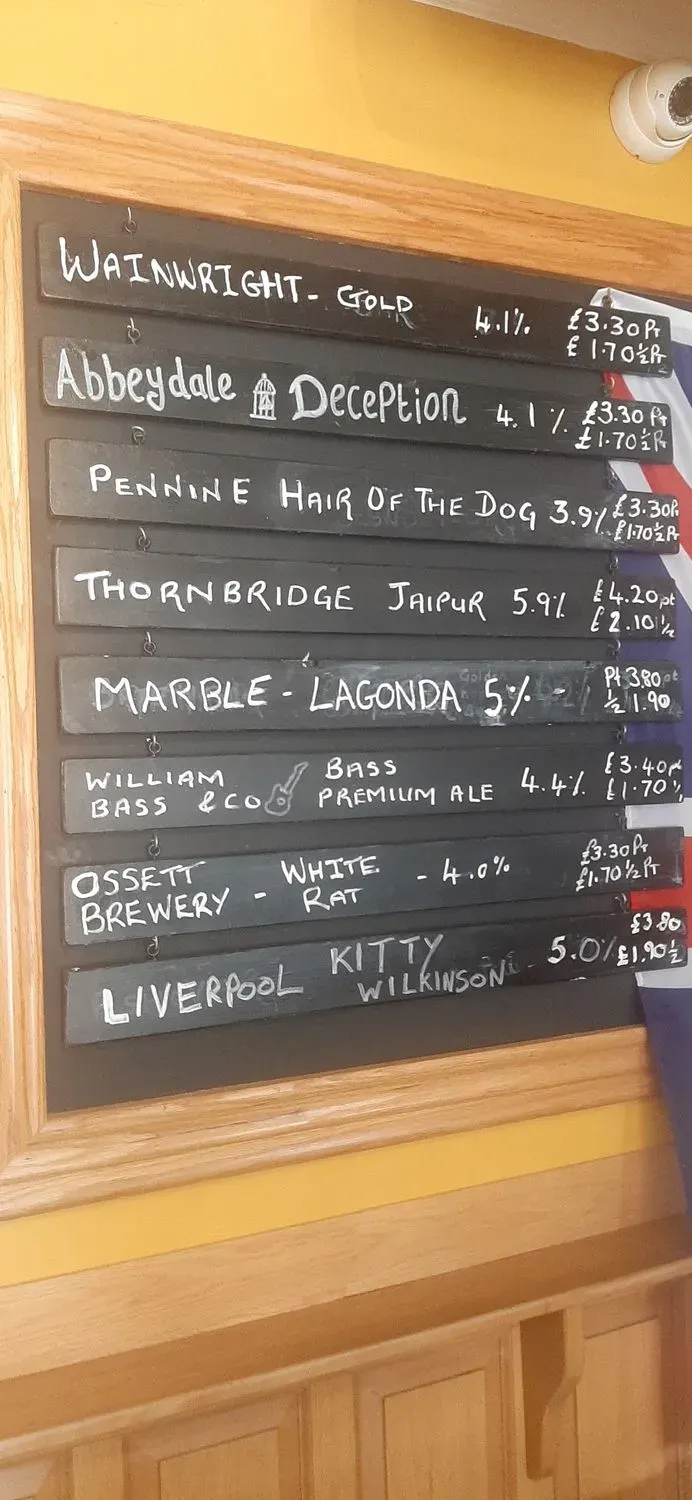 WAINWRIGHT - GOLD 4.1% £3.30 Pt
£1.70 ½Pt
Abbeydale DECEPtION 4.1% £3.30 Pt
£1.70 ½Pt
PENNINE HAIR OF THE DOG 3.9% £3.30P
£1.70½Pt
THORNBRIDGE JAIPUR 5.9% £4.20pt
£2.10 ½
MARBLE - LAGONDA 5% - Pt 3.80
½ 1.90
WILLIAM BASS £3.40pt
BASS & CO PREMIUM ALE 4.4% £1.70
OSSETT WHITE - 4.0% £3.30 Pt
BREWERY - RAT £1.70 ½ Pt
KITTY 5.0% £3.80
LIVERPOOL WILKINSON £1.90 ½